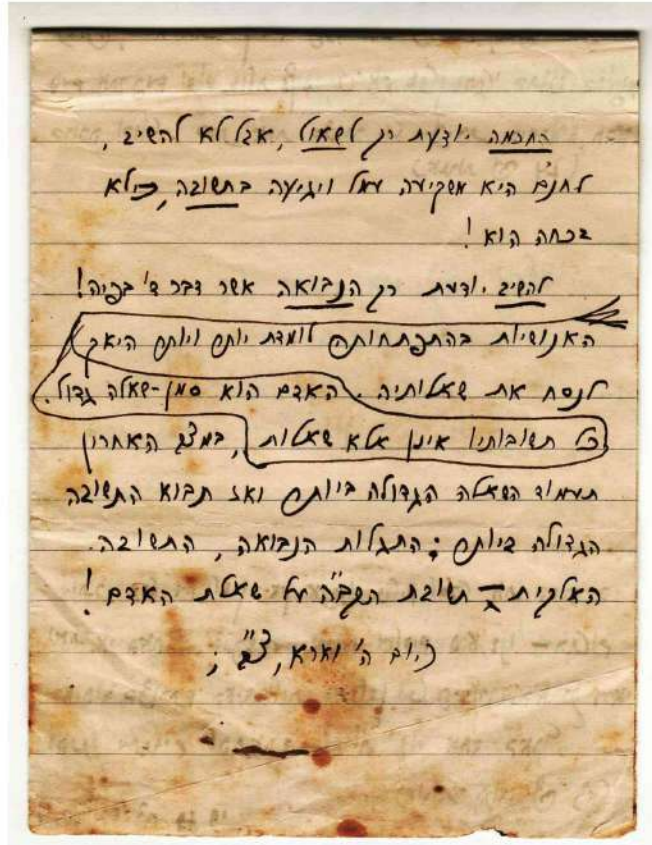 החכמה יודעת רק לשאול, אבל לא להשיב,
לחנם היא משקיעה עמל ויגיעה בתשובה, כי לא
בכחה הוא!
להשיב יודעת רק הנבואה אשר דבר ד' בפיה!
האנושיות בהתפתחותה לומדת יותר ויותר היאך
לנסח את שאלותיה. האדם הוא סמן-שאלה גדול.
כל תשובותיו אינן אלא שאלות, במצב האחרון
תעמוד השאלה הגדולה ביותר ואז תבוא התשובה
הגדולה ביותר: התגלות הנבואה, התשובה.
האלקית – תשובת הקב"ה על שאלת האדם!
יום ה' וארא,